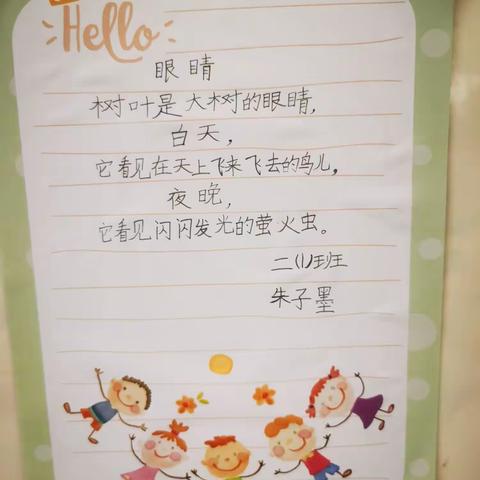 Hello
眼睛
树叶是大树的眼睛，
白天，
它看见在天上飞来飞去的鸟儿，
夜晚，
它看见闪闪发光的萤火虫。
二(1)班
朱子墨